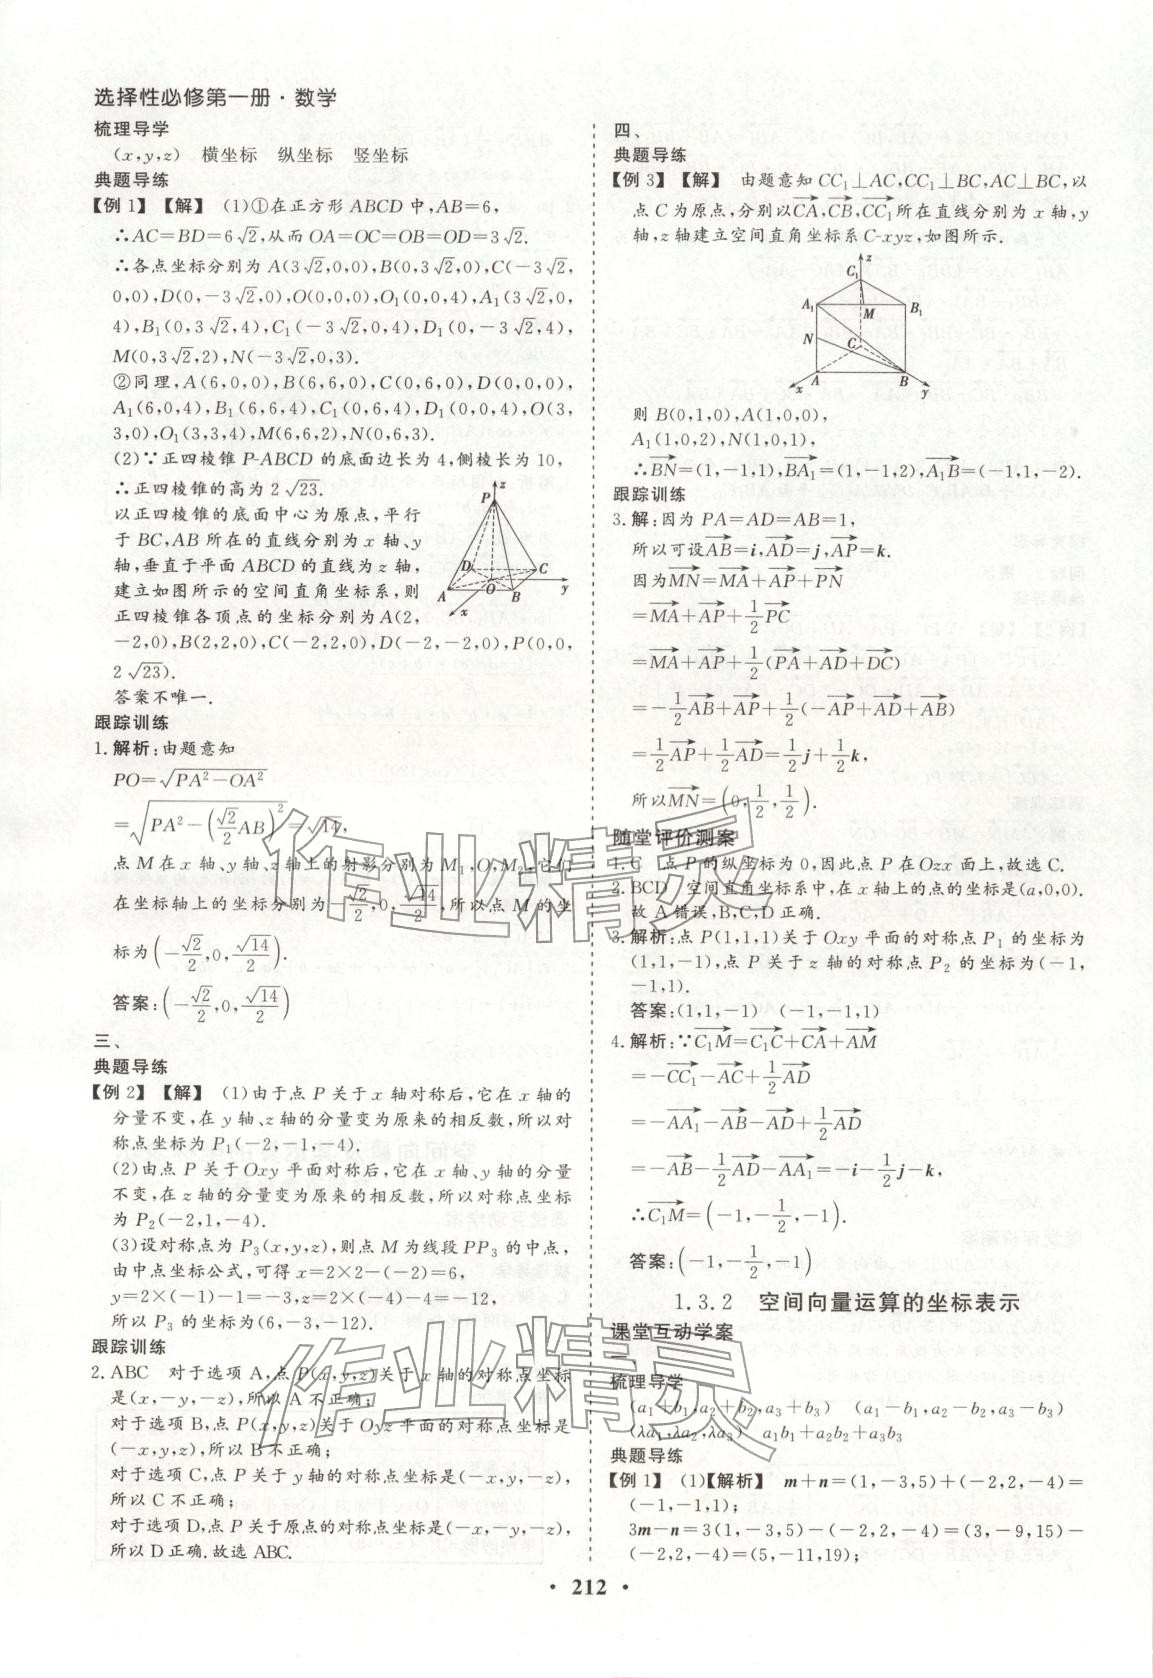 选择性必修第一册·数学
梳理导学
(x,y,z) 横坐标 纵坐标 竖坐标
典题导练
【例1】【解】 (1)①在正方形ABCD中,AB=6,
∴AC=BD=6√2,从而OA=OC=OB=OD=3√2.
∴各点坐标分别为A(3√2,0,0),B(0,3√2,0),C(-3√2,
0,0),D(0,-3√2,0),O(0,0,0),O₁(0,0,4),A₁(3√2,0,
4),B₁(0,3√2,4),C₁(-3√2,0,4),D₁(0,-3√2,4),
M(0,3√2,2),N(-3√2,0,3).
②同理,A(6,0,0),B(6,6,0),C(0,6,0),D(0,0,0),
A₁(6,0,4),B₁(6,6,4),C₁(0,6,4),D₁(0,0,4),O(3,
3,0),O₁(3,3,4),M(6,6,2),N(0,6,3).
(2)∵正四棱锥P-ABCD的底面边长为4,侧棱长为10,
∴正四棱锥的高为2√23.
以正四棱锥的底面中心为原点,平行
于BC,AB所在的直线分别为x轴、y
轴,垂直于平面ABCD的直线为z轴,
建立如图所示的空间直角坐标系,则
正四棱锥各顶点的坐标分别为A(2,
-2,0),B(2,2,0),C(-2,2,0),D(-2,-2,0),P(0,0,
2√23).
答案不唯一.
z
P
D
C
A
O
B
x
y
跟踪训练
1.解析:由题意知
PO=√(PA²-OA²)
=√(PA²-(√2/2 AB)²)=√14,
点M在x轴、y轴、z轴上的射影分别为M₁,O,M₂,它们
在坐标轴上的坐标分别为-√2/2,0,√14/2,所以点M的坐
标为(-√2/2,0,√14/2).
答案:(-√2/2,0,√14/2)
三、
典题导练
【例2】【解】 (1)由于点P关于x轴对称后,它在x轴的
分量不变,在y轴、z轴的分量变为原来的相反数,所以对
称点坐标为P₁(-2,-1,-4).
(2)由点P关于Oxy平面对称后,它在x轴、y轴的分量
不变,在z轴的分量变为原来的相反数,所以对称点坐标
为P₂(-2,1,-4).
(3)设对称点为P₃(x,y,z),则点M为线段PP₃的中点,
由中点坐标公式,可得x=2×2-(-2)=6,
y=2×(-1)-1=-3,z=2×(-4)-4=-12,
所以P₃的坐标为(6,-3,-12).
跟踪训练
2.ABC 对于选项A,点P(x,y,z)关于x轴的对称点坐标
是(x,-y,-z),所以A不正确;
对于选项B,点P(x,y,z)关于Oyz平面的对称点坐标是
(-x,y,z),所以B不正确;
对于选项C,点P关于y轴的对称点坐标是(-x,y,-z),
所以C不正确;
对于选项D,点P关于原点的对称点坐标是(-x,-y,-z),
所以D正确.故选ABC.
四、
典题导练
【例3】【解】 由题意知CC₁⊥AC,CC₁⊥BC,AC⊥BC,以
点C为原点,分别以CA→,CB→,CC₁→所在直线分别为x轴,y
轴,z轴建立空间直角坐标系C-xyz,如图所示.
z
C₁
A₁
M
B₁
N
C
A
B
x
y
则B(0,1,0),A(1,0,0),
A₁(1,0,2),N(1,0,1),
∴BN→=(1,-1,1),BA₁→=(1,-1,2),A₁B→=(-1,1,-2).
跟踪训练
3.解:因为PA=AD=AB=1,
所以可设AB→=i,AD→=j,AP→=k.
因为MN→=MA→+AP→+PN→
=MA→+AP→+1/2PC→
=MA→+AP→+1/2(PA→+AD→+DC→)
=-1/2AB→+AP→+1/2(-AP→+AD→+AB→)
=1/2AP→+1/2AD→=1/2j+1/2k,
所以MN→=(0,1/2,1/2).
随堂评价测案
1.C 点P的纵坐标为0,因此点P在Ozx面上,故选C.
2.BCD 空间直角坐标系中,在x轴上的点的坐标是(a,0,0).
故A错误,B,C,D正确.
3.解析:点P(1,1,1)关于Oxy平面的对称点P₁的坐标为
(1,1,-1),点P关于z轴的对称点P₂的坐标为(-1,
-1,1).
答案:(1,1,-1) (-1,-1,1)
4.解析:∵C₁M→=C₁C→+CA→+AM→
=-CC₁→-AC→+1/2AD→
=-AA₁→-AB→-AD→+1/2AD→
=-AB→-1/2AD→-AA₁→=-i-1/2j-k,
∴C₁M→=(-1,-1/2,-1).
答案:(-1,-1/2,-1)
1.3.2 空间向量运算的坐标表示
课堂互动学案
一、
梳理导学
(a₁+b₁,a₂+b₂,a₃+b₃) (a₁-b₁,a₂-b₂,a₃-b₃)
(λa₁,λa₂,λa₃) a₁b₁+a₂b₂+a₃b₃
典题导练
【例1】 (1)【解析】 m+n=(1,-3,5)+(-2,2,-4)=
(-1,-1,1);
3m-n=3(1,-3,5)-(-2,2,-4)=(3,-9,15)-
(-2,2,-4)=(5,-11,19);
·212·
作业精灵
作业精灵